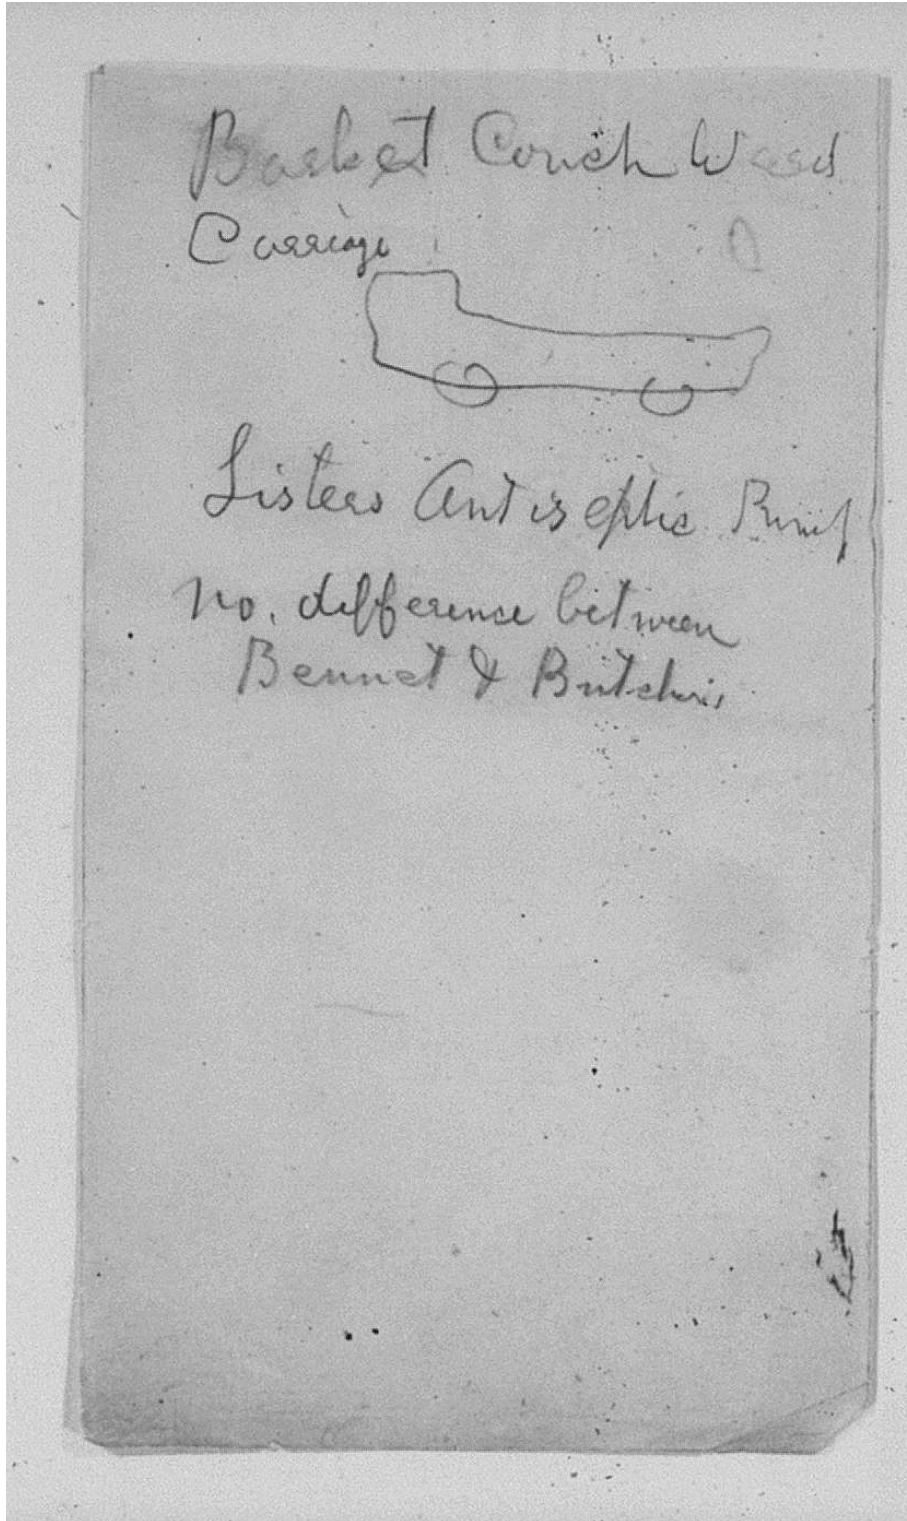 Basket Couch Ward
Carriage
Listers Antiseptic
no. difference between
Bennet & Butchers